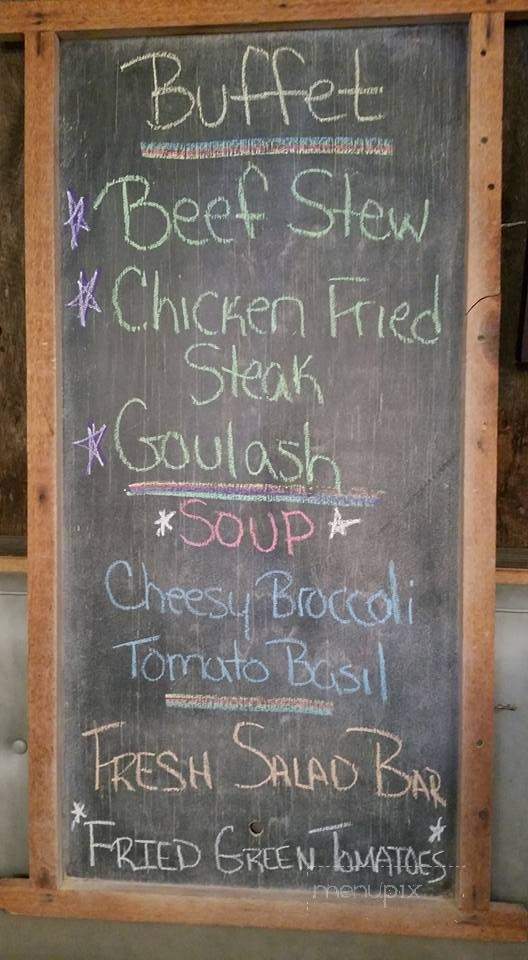 Buffet
Beef Stew
Chicken Fried
Steak
Goulash
SOUP
Cheesy Broccoli
Tomato Basil
FRESH SALAD BAR
FRIED GREEN TOMATOES
menupix